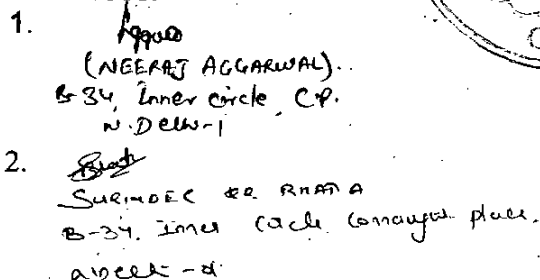 1.
(NEERAJ AGGARWAL)..
B-34, Inner circle, C.P.
N. Delhi-1
2.
SURINDER KR. BHATIA
B-34. Inner Circle Connaught place.